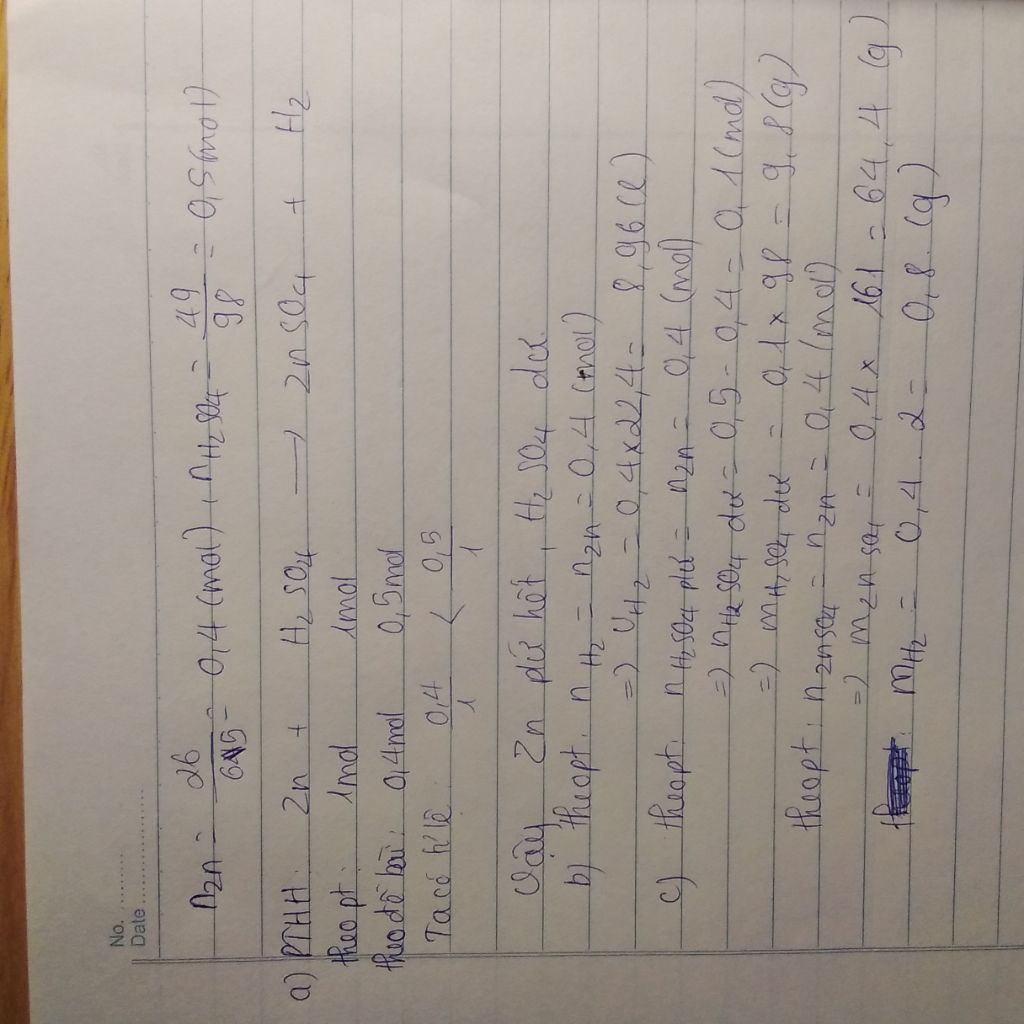 No. ............
Date ....................
n Zn = 26/65 = 0,4 (mol), n H₂SO₄ = 49/98 = 0,5 (mol)
a) PTHH: Zn + H₂SO₄ → ZnSO₄ + H₂
theo pt: 1mol 1mol
theo đề bài: 0,4mol 0,5mol
Ta có tỉ lệ: 0,4/1 < 0,5/1
Vậy Zn pứ hết, H₂SO₄ dư.
b) theo pt: n H₂ = n Zn = 0,4 (mol)
=> V H₂ = 0,4 x 22,4 = 8,96 (l)
c) theo pt: n H₂SO₄ pứ = n Zn = 0,4 (mol)
=> n H₂SO₄ dư = 0,5 - 0,4 = 0,1 (mol)
=> m H₂SO₄ dư = 0,1 x 98 = 9,8 (g)
theo pt: n ZnSO₄ = n Zn = 0,4 (mol)
=> m ZnSO₄ = 0,4 x 161 = 64,4 (g)
m H₂ = 0,4 . 2 = 0,8 (g)